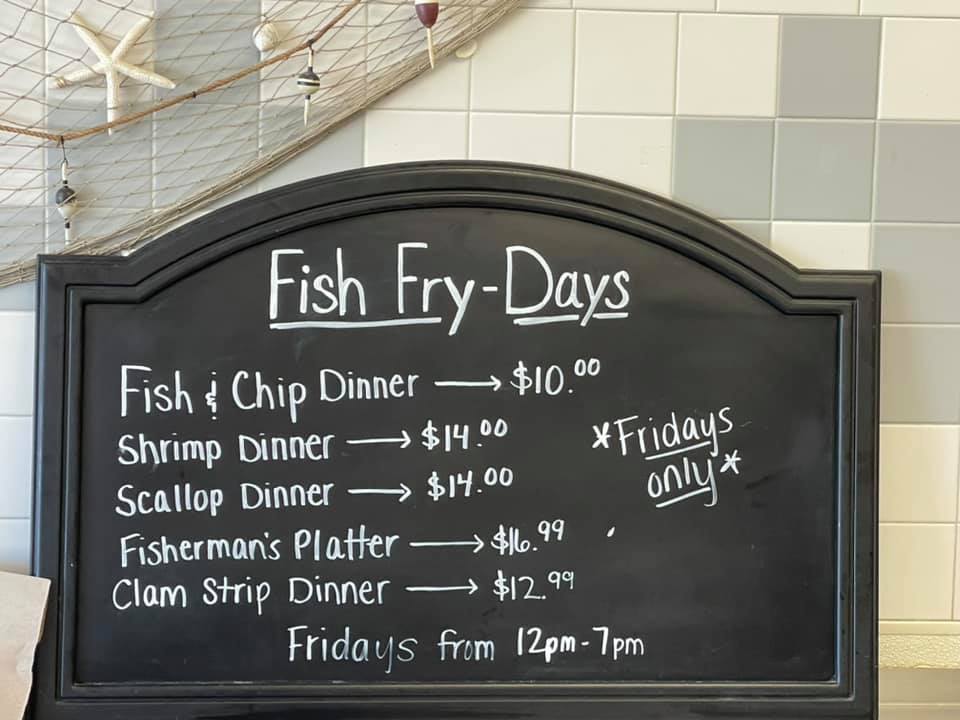 Fish Fry-Days
Fish & Chip Dinner → $10.00
Shrimp Dinner → $14.00
Scallop Dinner → $14.00
*Fridays
only*
Fisherman's Platter → $16.99
Clam Strip Dinner → $12.99
Fridays from 12pm-7pm